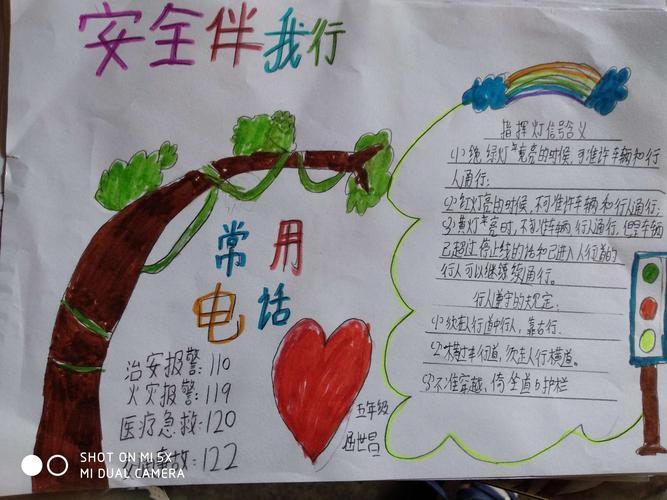 安全伴我行
常用
电话
治安报警:110
火灾报警:119
医疗急救:120
事故:122
五年级
屈世昌
指挥灯信号含义
(1)绿灯亮的时候,可准许车辆和行
人通行;
(2)红灯亮的时候,不可准许车辆和行人通行;
(3)黄灯亮时,不可准车辆,行人通行,但车辆
已超过停止线的话和已进入人行道的
行人可以继续通行。
行人遵守的规定:
(1)须走人行道中行人,靠右行.
(2)横过车行道,须走人行横道。
(3)不准穿越、倚坐道口护栏
SHOT ON MI 5X
MI DUAL CAMERA